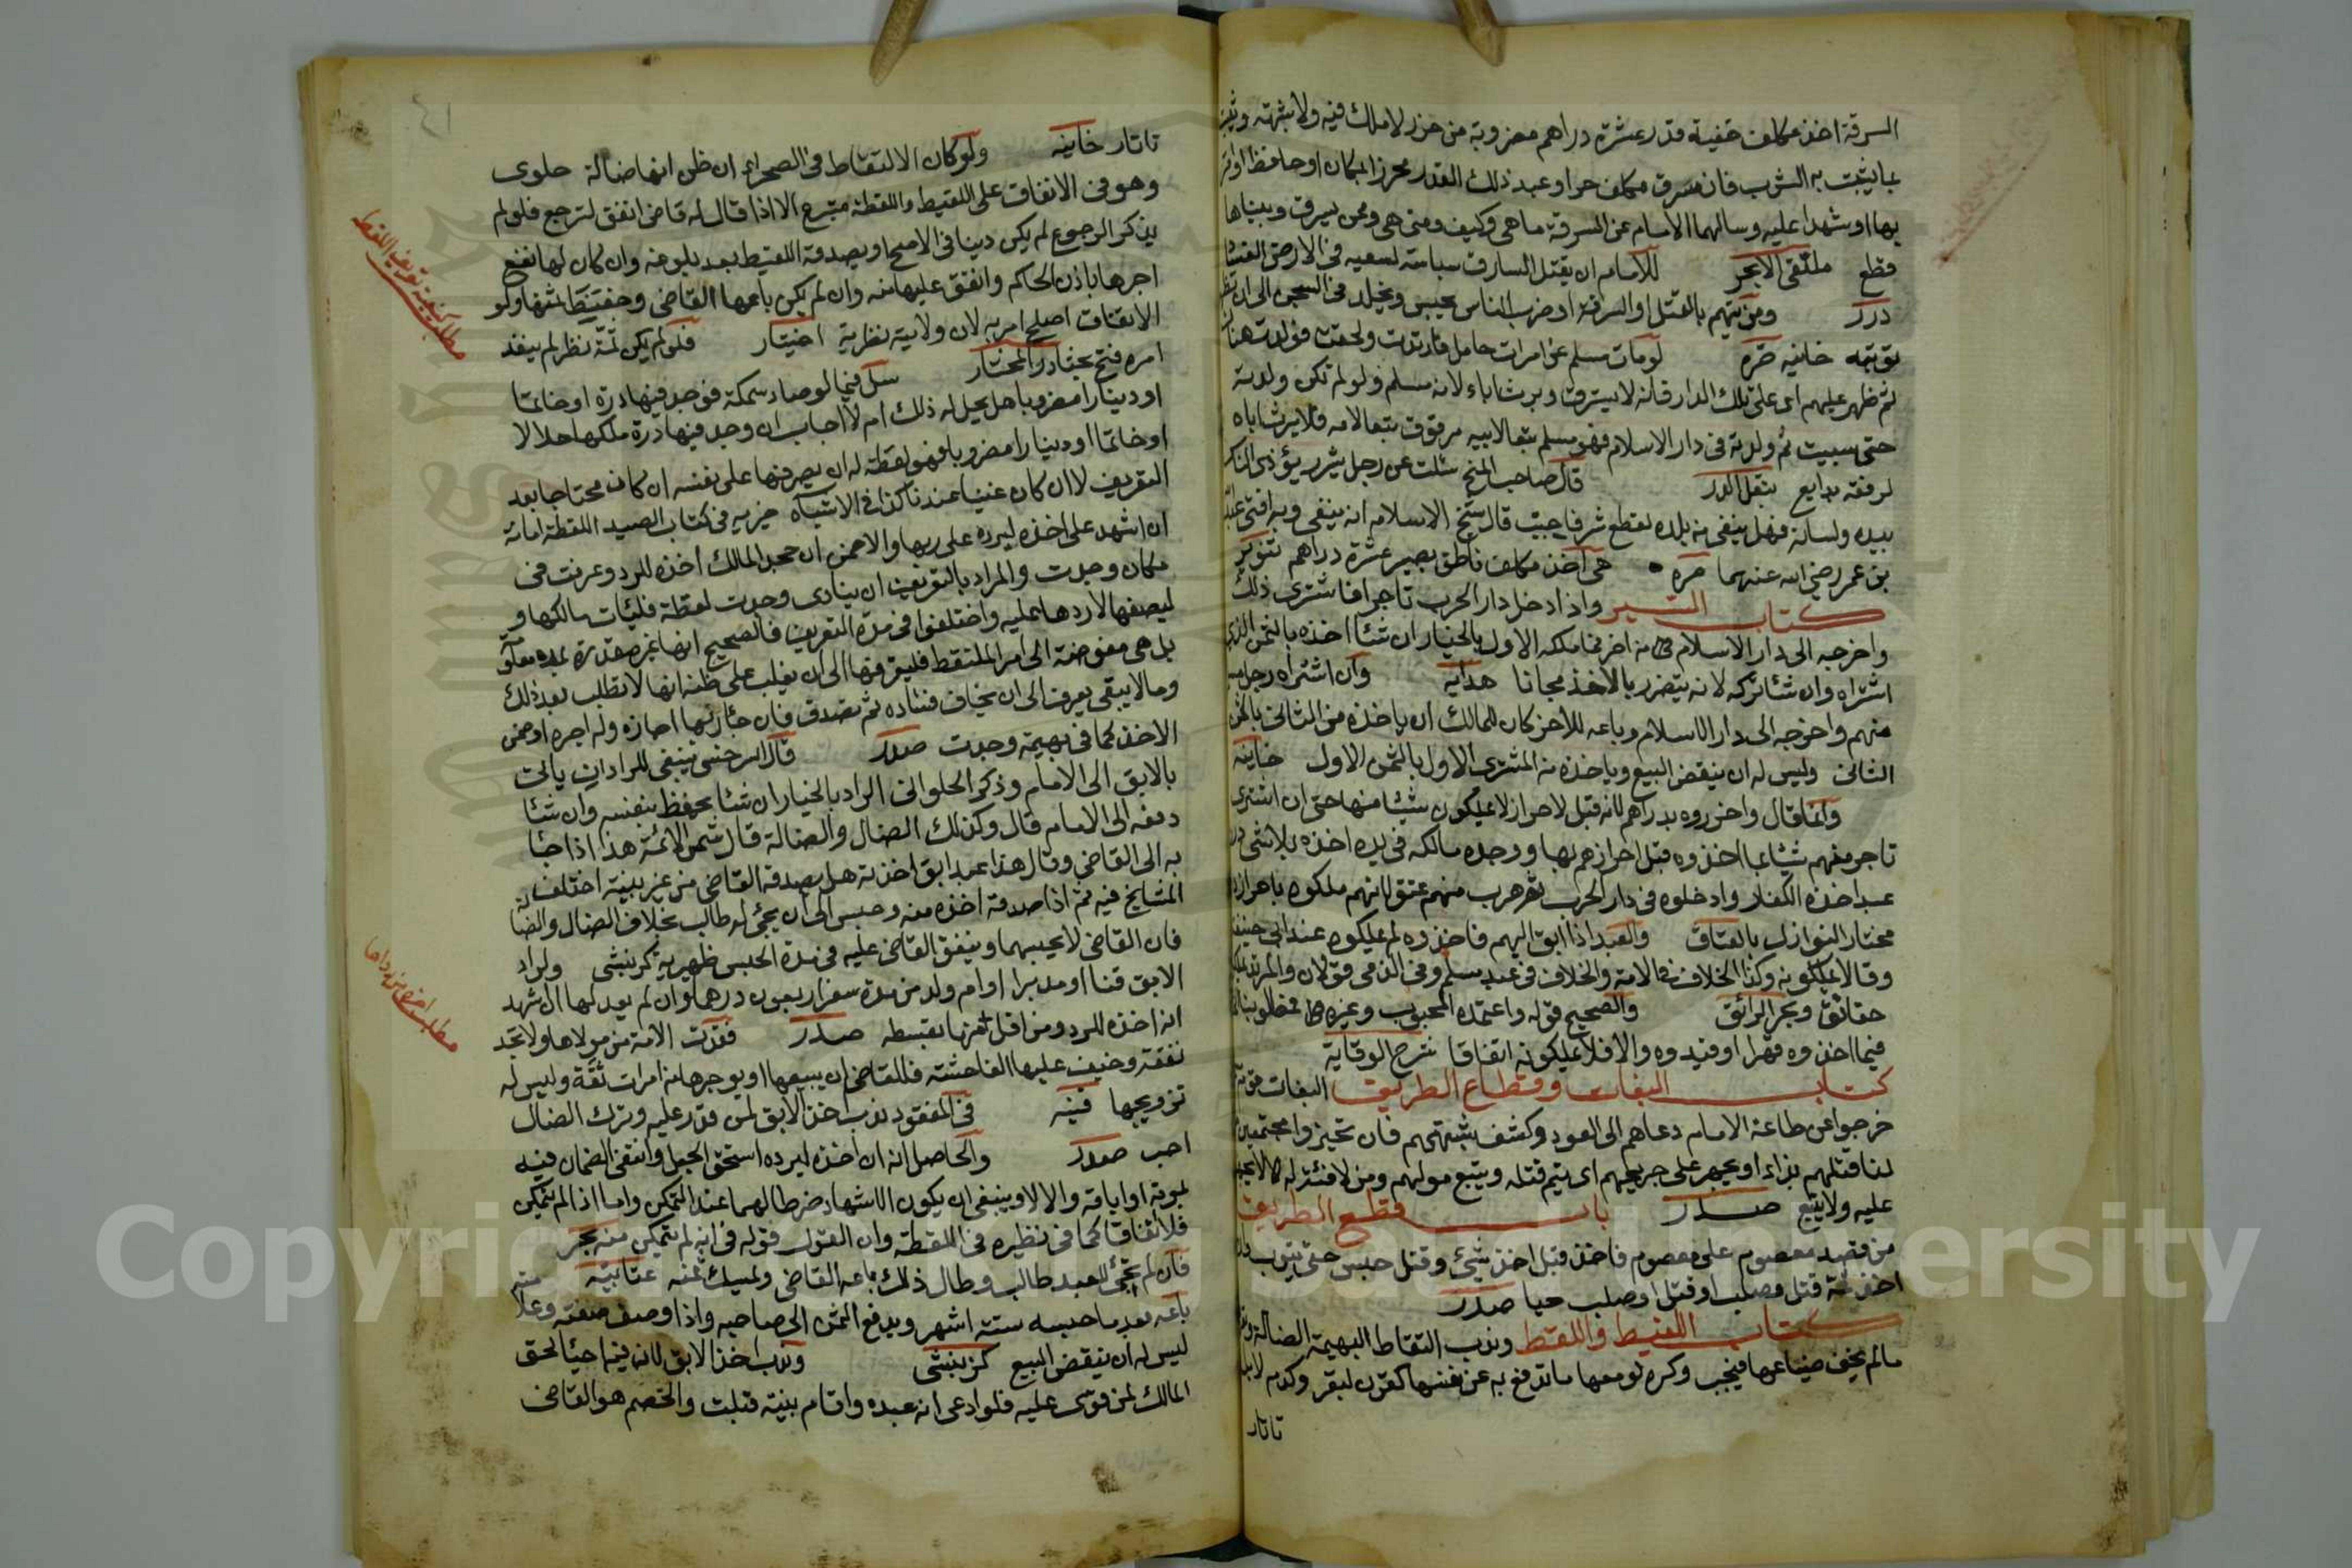 السرقة اخذ مكلف خفية قدر عشرة دراهم مضروبة من حرز لا ملك فيه ولا شبهته
بما يثبت به الشرب فان سرق مكلف حر او عبد ذلك القدر محرزا بمكان او حافظ
بها او شهدا عليه وسالهما الامام عن السرقة ما هى وكيف ومتى هى وممن سرق وبيناها
قطع ملتقى الابحر للامام ان يقتل السارق سياسة لسعيه فى الارض
درر ومن يتهم بالقتل او السرقة او ضرب الناس يحبس ويخلد فى السجن الى ان
توبته خانيه لو مات مسلم عن امرات حامل فارتدت ولحقت فولدت هناك
ثم ظهر عليهم اى على تلك الدار فانه لا يسترق ويرث اباه لانه مسلم ولو لم تكن ولدته
حتى سبيت ثم ولدته فى دار الاسلام فهو مسلم تبعا لابيه مرقوق تبعا لامه فلا يرث اباه
لرقه بدايع قال صاحب المنح سئلت عن رجل شرير يؤذى الناس
بيده ولسانه فهل ينفى من بلده لقطع شره فاجبت قال شيخ الاسلام انه ينفى وبه افتى
بن عمر رضى الله عنهما هى اخذ مكلف ناطق بصير عشرة دراهم تنوير
كتاب السير واذا دخل دار الحرب تاجر فاشترى ذلك
واخرجه الى دار الاسلام فمالكه الاول بالخيار ان شاء اخذه بالثمن الذى
اشتراه وان شاء تركه لانه يتضرر بالاخذ مجانا هدايه وان اشتراه رجل
منهم واخرجه الى دار الاسلام وباعه للاخر كان للمالك ان ياخذه من الثانى بالثمن
الثانى وليس له ان ينقض البيع وياخذه من المشترى الاول بالثمن الاول خانيه
وانما قال واحرزوه بدراهم لانه قبل الاحراز لا يملكون شيئا منها حتى ان اشترى
تاجر منهم شيئا مما اخذوه قبل احرازهم بها ووجده مالكه فى يده اخذه بلا شى
عبد اخذه الكفار وادخلوه فى دار الحرب ثم هرب منهم عتق لانهم ملكوه باحرازه
مختار النوازل بالعتاق والعبد اذا ابق اليهم فاخذوه لم يملكوه عند ابى حنيفة
وقالا يملكونه وكذا الخلاف فى الامة والخلاف فى عبد مسلم وفى الذمى قولان
حقائق وبحر الرائق والصحيح قوله واعتمده المحبوبى وغيره
فيما اخذوه قهرا وقيدوه والا فلا يملكونه اتفاقا شرح الوقاية
كتاب البغات وقطاع الطريق البغات
خرجوا عن طاعة الامام دعاهم الى العود وكشف شبهتهم فان تحيزوا مجتمعين
لنا قتلهم بداء او يجهز على جريحهم اى يتم قتله ويتبع موليهم ومن لا فئة له
عليه ولا يتبع باب قطع الطريق
من قصد معصوم على معصوم فاخذ قبل اخذ شىء وقتل حبس حتى يتوب
قتل وصلب او قتل او صلب حيا
كتاب اللقيط واللقط وندب التقاط البهيمة الضالة
مالم يخف ضياعها فيجب وكره لو معها ما تدفع به عن نفسها كقرن لبقر وكدم
تاتار
٤١
تاتار خانيه ولو كان الالتقاط فى الصحراء ان ظن انها ضالة حاوى
وهو فى الانفاق على اللقيط واللقطة متبرع الا اذا قال له قاضى انفق لترجع فلو لم
يذكر الرجوع لم يكن دينا فى الاصح او يصدقه اللقيط بعد بلوغه وان كان لها نفع
اجرها باذن الحاكم وانفق عليها منه وان لم يكن باعها القاضى وحفظ ثمنها ولو
الانفاق اصلح امر به لان ولايته نظرية اختيار فلو لم يكن ثمة نظر لم ينفذ
امره فتح بحثا در المختار سئل فيما لو صاد سمكة فوجد فيها درة او خاتما
او دينارا مضروبا هل يحل له ذلك ام لا اجاب ان وجد فيها درة ملكها حلالا
او خاتما او دينارا مضروبا فهو لقطة له ان يصرفها على نفسه ان كان محتاجا بعد
التعريف لا ان كان غنيا عندنا كذا فى الاشباه خيريه فى كتاب الصيد اللقطة امانة
ان اشهد على اخذه ليرده على ربها والا ضمن ان جحد المالك اخذه للرد وعرفت فى
مكان وجدت والمراد بالتعريف ان ينادى وجدت لقطة فليات مالكها و
ليصفها لاردها عليه واختلفوا فى مدة التعريف فالصحيح انها غير مقدرة بمده
بل هى مفوضة الى امر الملتقط فليعرفها الى ان يغلب على ظنه انها لا تطلب بعد ذلك
وما لا يبقى يعرف الى ان يخاف فساده ثم تصدق فان جاء ربها اجازه وله اجره او ضمن
الاخذ كما فى بهيمة وجدت قال السرخسى ينبغى للراد ان ياتى
بالابق الى الامام وذكر الحلوانى الراد بالخيار ان شاء يحفظ بنفسه وان شاء
دفعه الى الامام قال وكذلك الضال والضالة قال شمس الائمة هذا اذا جاء
به الى القاضى وقال هذا عبد ابق اخذته هل يصدقه القاضى من غير بينة اختلف
المشايخ فيه ثم اذا صدقه اخذه منه وحبس الى ان يجئ له طالب بخلاف الضال والضالة
فان القاضى لا يحبسهما وينفق القاضى عليه فى مدة الحبس ظهيريه ولراد
الابق قنا او مدبرا او ام ولد من مدة سفر اربعون درهما وان لم يعدلها ان شهد
انه اخذه للرد ومن اقل منها بقسطه فقدت الامة من مولاها ولا تجد
نفقة وخيف عليها الفاحشة فللقاضى ان يبيعها او يوجرها من امرات ثقة وليس له
تزويجها قنيه فى المفقود ندب اخذ الابق لمن قدر عليه وترك الضال
احب والحاصل انه ان اخذه ليرده استحق الجعل وانتفى الضمان فيه
بموته او اباقه والا لا وينبغى ان يكون الاشهاد شرطا لهما عند التمكن واما اذا لم يتمكن
فلا اتفاقا كما فى نظيره فى اللقطة وان القول قوله فى انه لم يتمكن منه بحر
فان لم يجئ للعبد طالب وطال ذلك باعه القاضى ويمسك ثمنه عتابيه
باعه بعد ما حبسه ستة اشهر ويدفع الثمن الى صاحبه واذا وصف صفته
ليس له ان ينقض البيع وندب اخذ الابق لانه فيه احياء لحق
المالك لمن قوى عليه فلو ادعى انه عبده واقام بينة قبلت والخصم هو القاضى
مطلب كيفية تعريف اللقط
مطلب
Copyright © King Saud University